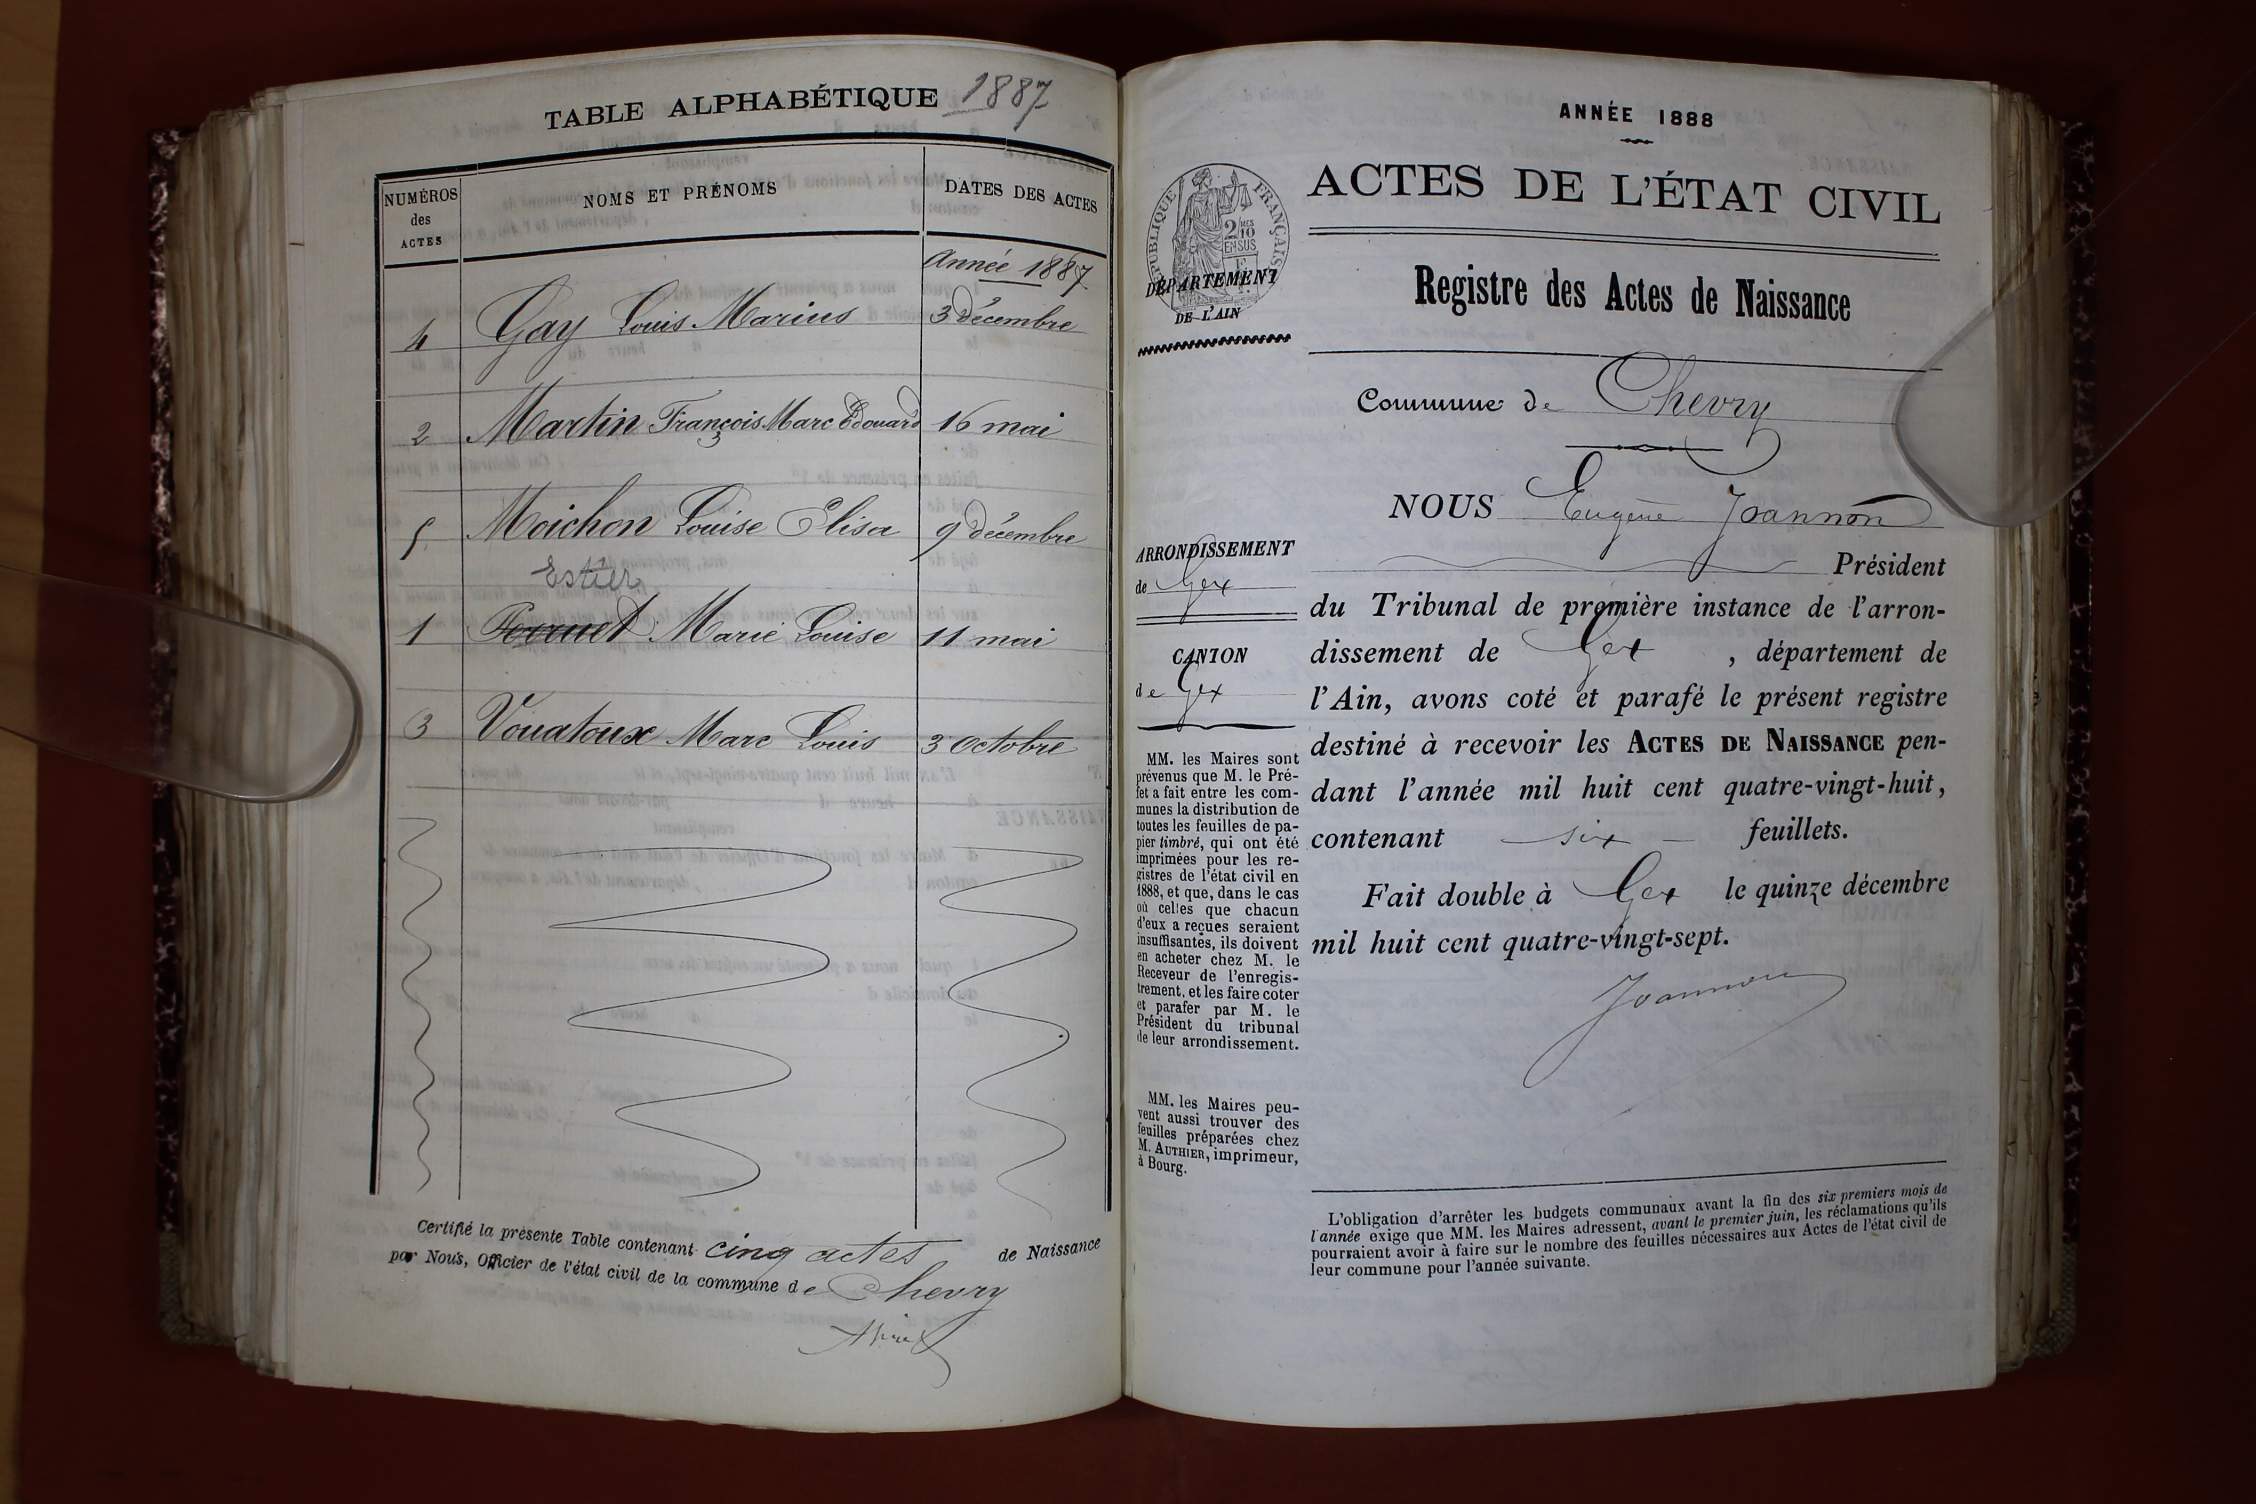 TABLE ALPHABÉTIQUE 1887
NUMÉROS des ACTES NOMS ET PRÉNOMS DATES DES ACTES
Année 1887
4 Gay Louis Marius 3 décembre
2 Martin François Marc Edouard 16 mai
5 Moichon Louise Elisa 9 décembre
Estier
1 Perruet Marie Louise 11 mai
3 Vouatoux Marc Louis 3 octobre
Certifié la présente Table contenant cinq actes de Naissance
par Nous, Officier de l'état civil de la commune de Chevry
ANNÉE 1888
ACTES DE L'ÉTAT CIVIL
RÉPUBLIQUE FRANÇAISE
2/10 EN SUS
DÉPARTEMENT
DE L'AIN
Registre des Actes de Naissance
Commune de Chevry
NOUS Eugène Joannon
Président
du Tribunal de première instance de l'arron-
dissement de Gex, département de
l'Ain, avons coté et parafé le présent registre
destiné à recevoir les ACTES DE NAISSANCE pen-
dant l'année mil huit cent quatre-vingt-huit,
contenant six feuillets.
Fait double à Gex le quinze décembre
mil huit cent quatre-vingt-sept.
Joannon
ARRONDISSEMENT
de Gex
CANTON
de Gex
MM. les Maires sont
prévenus que M. le Pré-
fet a fait entre les com-
munes la distribution de
toutes les feuilles de pa-
pier timbré, qui ont été
imprimées pour les re-
gistres de l'état civil en
1888, et que, dans le cas
où celles que chacun
d'eux a reçues seraient
insuffisantes, ils doivent
en acheter chez M. le
Receveur de l'enregis-
trement, et les faire coter
et parafer par M. le
Président du tribunal
de leur arrondissement.
MM. les Maires peu-
vent aussi trouver des
feuilles préparées chez
M. AUTHIER, imprimeur,
à Bourg.
L'obligation d'arrêter les budgets communaux avant la fin des six premiers mois de
l'année exige que MM. les Maires adressent, avant le premier juin, les réclamations qu'ils
pourraient avoir à faire sur le nombre des feuilles nécessaires aux Actes de l'état civil de
leur commune pour l'année suivante.